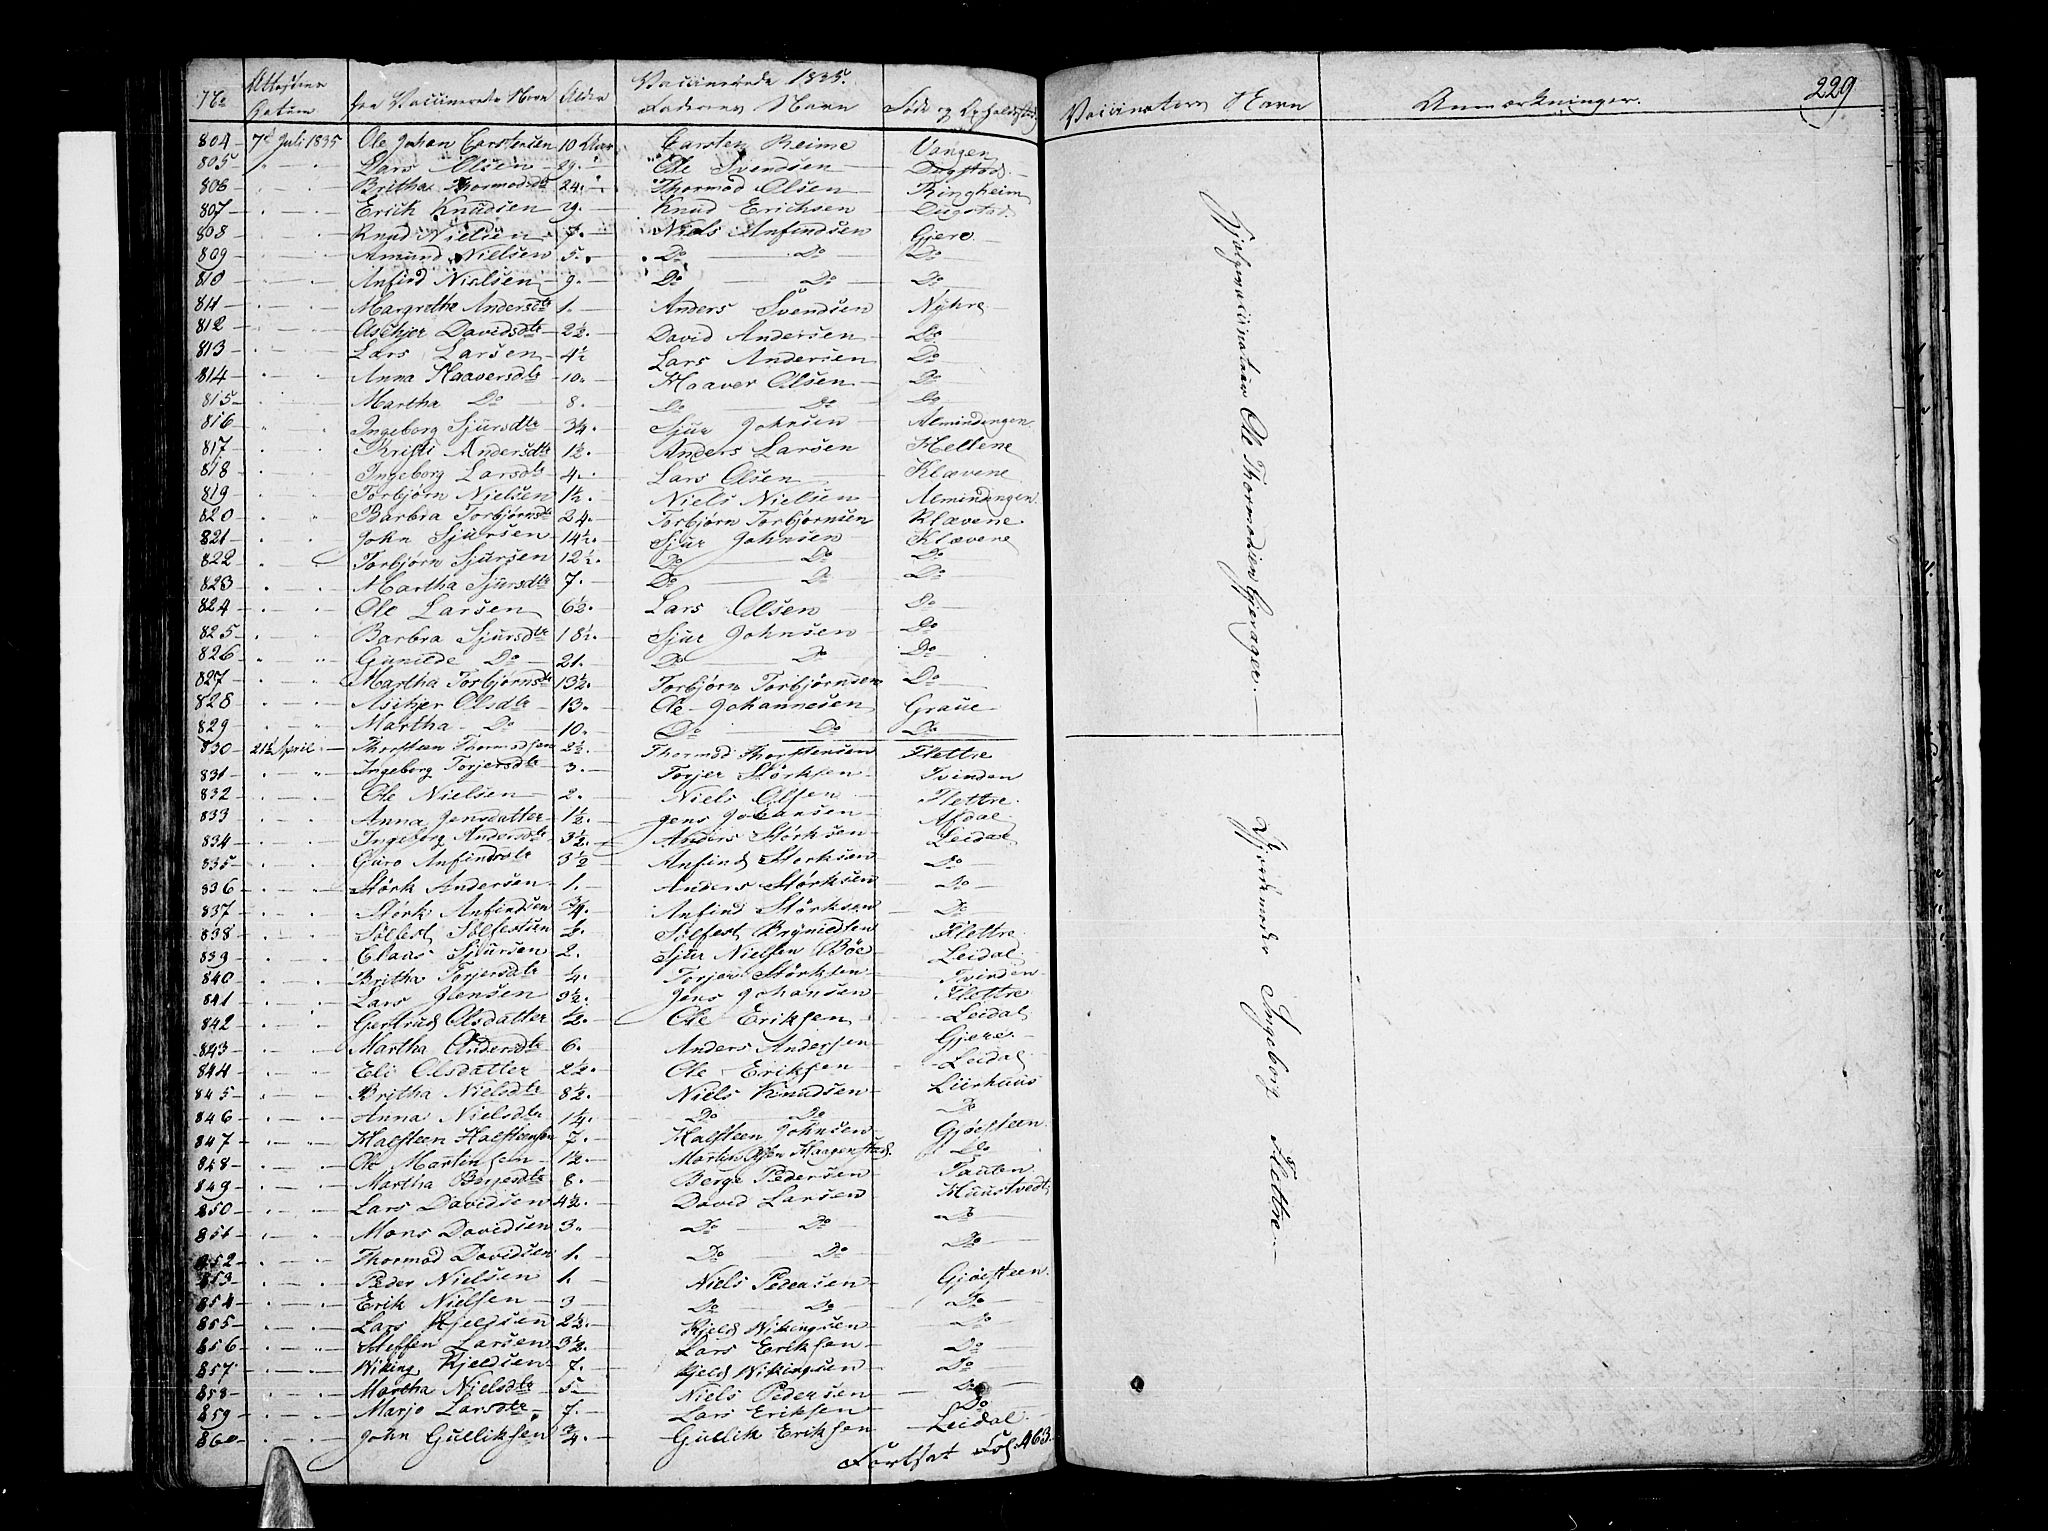 Vaccinerede 1835.
No Attestens Datum | den Vaccineredes Navn | Alder | Faderens Navn | Føde og Opholdssted | Vaccinateurs Navn | Anmærkninger. 229
804 7de Juli 1835 Ole Johan Carstensen 10 Aar Carsten Reime Vangen
805 " " Lars Olsen 29. " Ole Svendsen Dugstad
806 " " Britha Thormodsdtr 24. " Thormod Olsen Ringheim
807 " " Erich Knudsen 29. Knud Erichsen Dugstad
808 " " Knud Nielsen 7. Niels Anfindsen Gjere
809 " " Amund Nielsen 5. Do Do Do
810 " " Anfind Nielsen 9. Do Do Do
811 " " Margretha Andersdtr 1. Anders Svendsen Nyhre
812 " " Aschjer Davidsdtr 2½. David Andersen Do
813 " " Lars Larsen 4½ Lars Andersen Do
814 " " Anna Haaversdtr 10. Haaver Olsen Do
815 " " Martha Do 8. Do Do Do
816 " " Ingeborg Sjursdtr 3/4. Sjur Johnsen Almindingen
817 " " Kristi Andersdtr 1½. Anders Larsen Hellene
818 " " Ingeborg Larsdtr 4. Lars Olsen Klævene
819 " " Torbjørn Nielsen 1½. Niels Nielsen Almindingen.
820 " " Barbra Torbjørnsdtr 24. Torbjørn Torbjørnsen Klævene
821 " " John Sjursen 14½. Sjur Johnsen Klævene
822 " " Torbjørn Sjursen 12½. Do Do Do
823 " " Martha Sjursdtr 7. Do Do Do
824 " " Ole Larsen 6½. Lars Olsen Do
825 " " Barbra Sjursdtr 18½. Sjur Johnsen Do
826 " " Gunilde Do 21. Do Do Do
827 " " Martha Torbjørnsdtr 13½. Torbjørn Torbjørnsen Do
828 " " Aschjer Olsdtr 13. Ole Johannesen Graue
829 " " Martha Do 10. Do Do Do
830 21de April Thorsteen Thormodsen 2½. Thormod Thorstensen Flettre
831 " " Ingeborg Torjersdtr 3. Torjer Størksen Tvinden
832 " " Ole Nielsen 2. Niels Olsen Flettre.
833 " " Anna Jensdatter 1½. Jens Johansen Afdal.
834 " " Ingeborg Andersdtr 3½. Anders Størksen Leidal
835 " " Guro Anfindsdtr 3½ Anfind Størksen Do
836 " " Størk Andersen 1. Anders Størksen Do
837 " " Størk Anfindsen 3/4. Anfind Størksen Do
838 " " Sølfest Sølfestsen ½. Sølfest Brynildsen Flettre.
839 " " Claas Sjursen 2. Sjur Nielsen Bøe Leidal
840 " " Britha Torjersdtr ¼. Torjer Størksen Tvinden
841 " " Lars Jensen 3½. Jens Johansen Flettre
842 " " Gertrud Olsdatter ½. Ole Eriksen Leidal
843 " " Martha Andersdtr 6. Anders Andersen Gjere.
844 " " Eli Olsdatter 2½. Ole Eriksen Leidal
845 " " Britha Nielsdtr 8½. Niels Knudsen Liirhuus
846 " " Anna Nielsdtr 1¼. Do Do Do
847 " " Halsteen Halsteensen 7. Halsteen Johnsen Gjøesteen
848 " " Ole Martinsen 1½. Martin Haagenstad. Do
849 " " Martha Bergesdtr 8. Berge Pedersen Tauten
850 " " Lars Davidsen 4½. David Larsen Huustvedt
851 " " Mons Davidsen 3. Do Do Do
852 " " Thormod Davidsen 1. Do Do Do
853 " " Peder Nielsen 1. Niels Pedersen Gjøesteen.
854 " " Erik Nielsen 3 Do Do Do
855 " " Lars Kjeldsen 2½. Kjeld Vikingsen Do
856 " " Steffen Larsen 3½. Lars Eriksen Do
857 " " Wiking Kjeldsen 7. Kjeld Vikingsen Do
858 " " Martha Nielsdtr 5. Niels Pedersen Do
859 " " Marjo Larsdtr 7. Lars Eriksen Do
860 " " John Gulliksen 3/4. Gullik Eriksen Leidal
Fortsat Fol. 463
Hjelpevaccinateur Ole Thormodsen Gjerager.
Gjordemoder Ingeborg Flettre